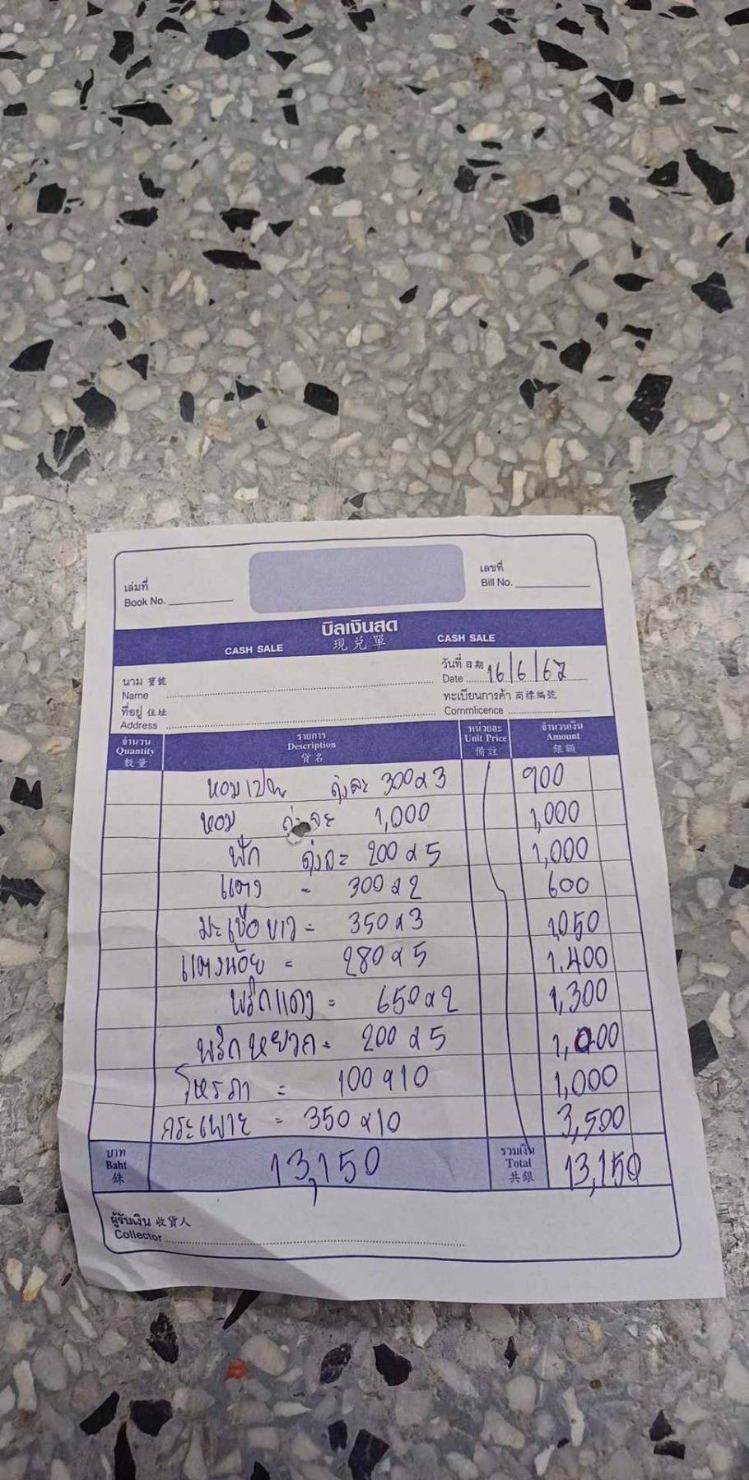 เล่มที่ เลขที่
Book No. Bill No.
บิลเงินสด
CASH SALE 現兌單 CASH SALE
นาม 寶號 วันที่ 日期 16/6/67
Name Date
ที่อยู่ 住址 ทะเบียนการค้า 商標編號
Address Commlicence
จำนวน รายการ หน่วยละ จำนวนเงิน
Quantity Description Unit Price Amount
數量 貨名 備註 銀額
หอมเปีย ถุงละ 300 x 3 900
หอม ถุงละ 1,000 1,000
ฟัก ถุงละ 200 x 5 1,000
แตง = 300 x 2 600
มะเขือขาว = 350 x 3 1,050
แตงน้อย = 280 x 5 1,400
พริกแดง = 650 x 2 1,300
พริกหยวก = 200 x 5 1,000
โหรภา = 100 x 10 1,000
กระเพาะ = 350 x 10 3,500
บาท รวมเงิน
Baht 13,150 Total 13,150
銖 共銀
ผู้รับเงิน 收貨人
Collector